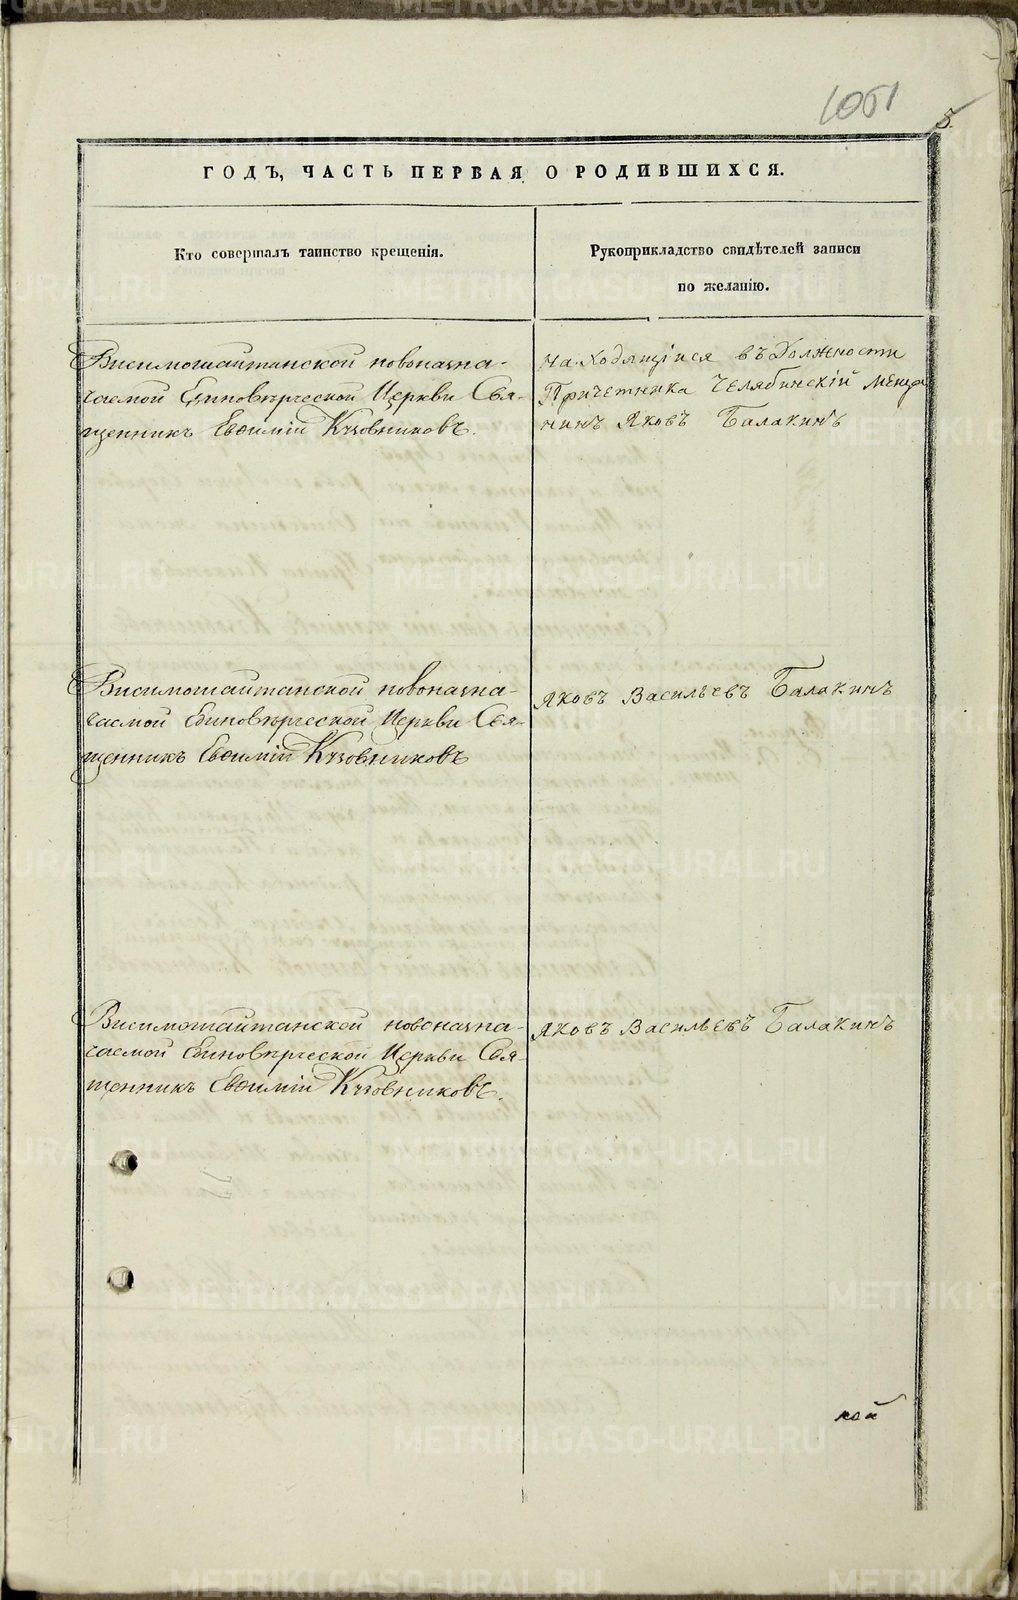 1051
5.
ГОДЪ, ЧАСТЬ ПЕРВАЯ О РОДИВШИХСЯ.
Кто совершалъ таинство крещенія.
Рукоприкладство свидѣтелей записи
по желанію.
Висимошайтанской новоназна-
чаемой Единовѣрческой Церкви Свя-
щенникъ Евѳимій Кузовниковъ.
находящійся въ Должности
Причетника Челябинскій меща
нинъ Яковъ Балакинъ
Висимошайтанской новоназна-
чаемой Единовѣрческой Церкви Свя-
щенникъ Евѳимій Кузовниковъ
Яковъ Васильевъ Балакинъ
Висимошайтанской новоназна-
чаемой Единовѣрческой Церкви Свя-
щенникъ Евѳимій Кузовниковъ.
Яковъ Васильевъ Балакинъ
кой
METRIKI.GASO-URAL.RU